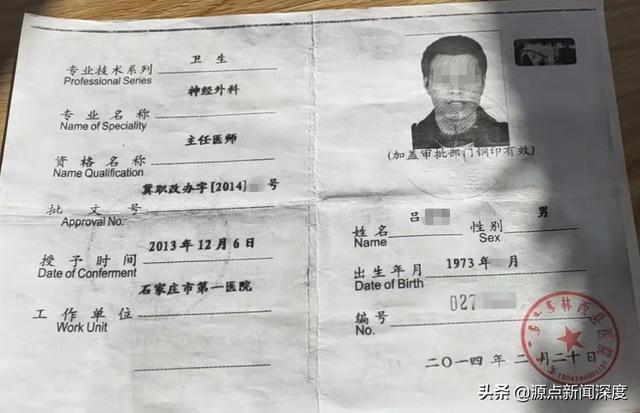 专业技术系列 卫生
Professional Series
专业名称 神经外科
Name of Speciality
资格名称 主任医师
Name Qualification
批文号 冀职改办字[2014] 号
Approval No.
授予时间 2013年12月6日
Date of Conferment
工作单位 石家庄市第一医院
Work Unit
(加盖审批部门钢印有效)
姓名 吕 性别 男
Name Sex
出生年月 1973年 月
Date of Birth
编号 027
No.
林西县医
二〇一四年二月二十日
头条 @源点新闻深度